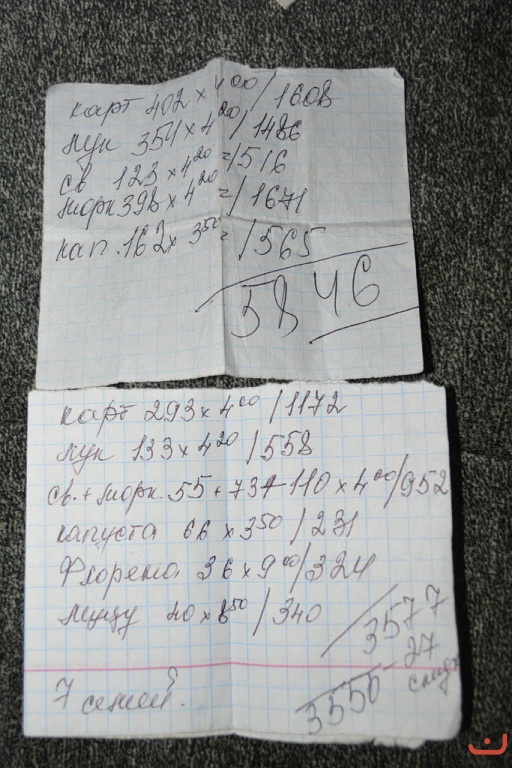 карт 402 × 4⁰⁰/1608
лук 354 × 4²⁰/1486
св 123 × 4²⁰=/516
морк 398 × 4²⁰=/1671
кап. 162 × 3⁵⁰=/565
5846
карт 293 × 4⁰⁰/1172
лук 133 × 4²⁰/558
св.+морк. 55+73 110 × 4⁰⁰/952
капуста 66 × 3⁵⁰/231
Флорена 36 × 9⁰⁰/324
40 × 8⁵⁰/340
3577
-27
3550
7